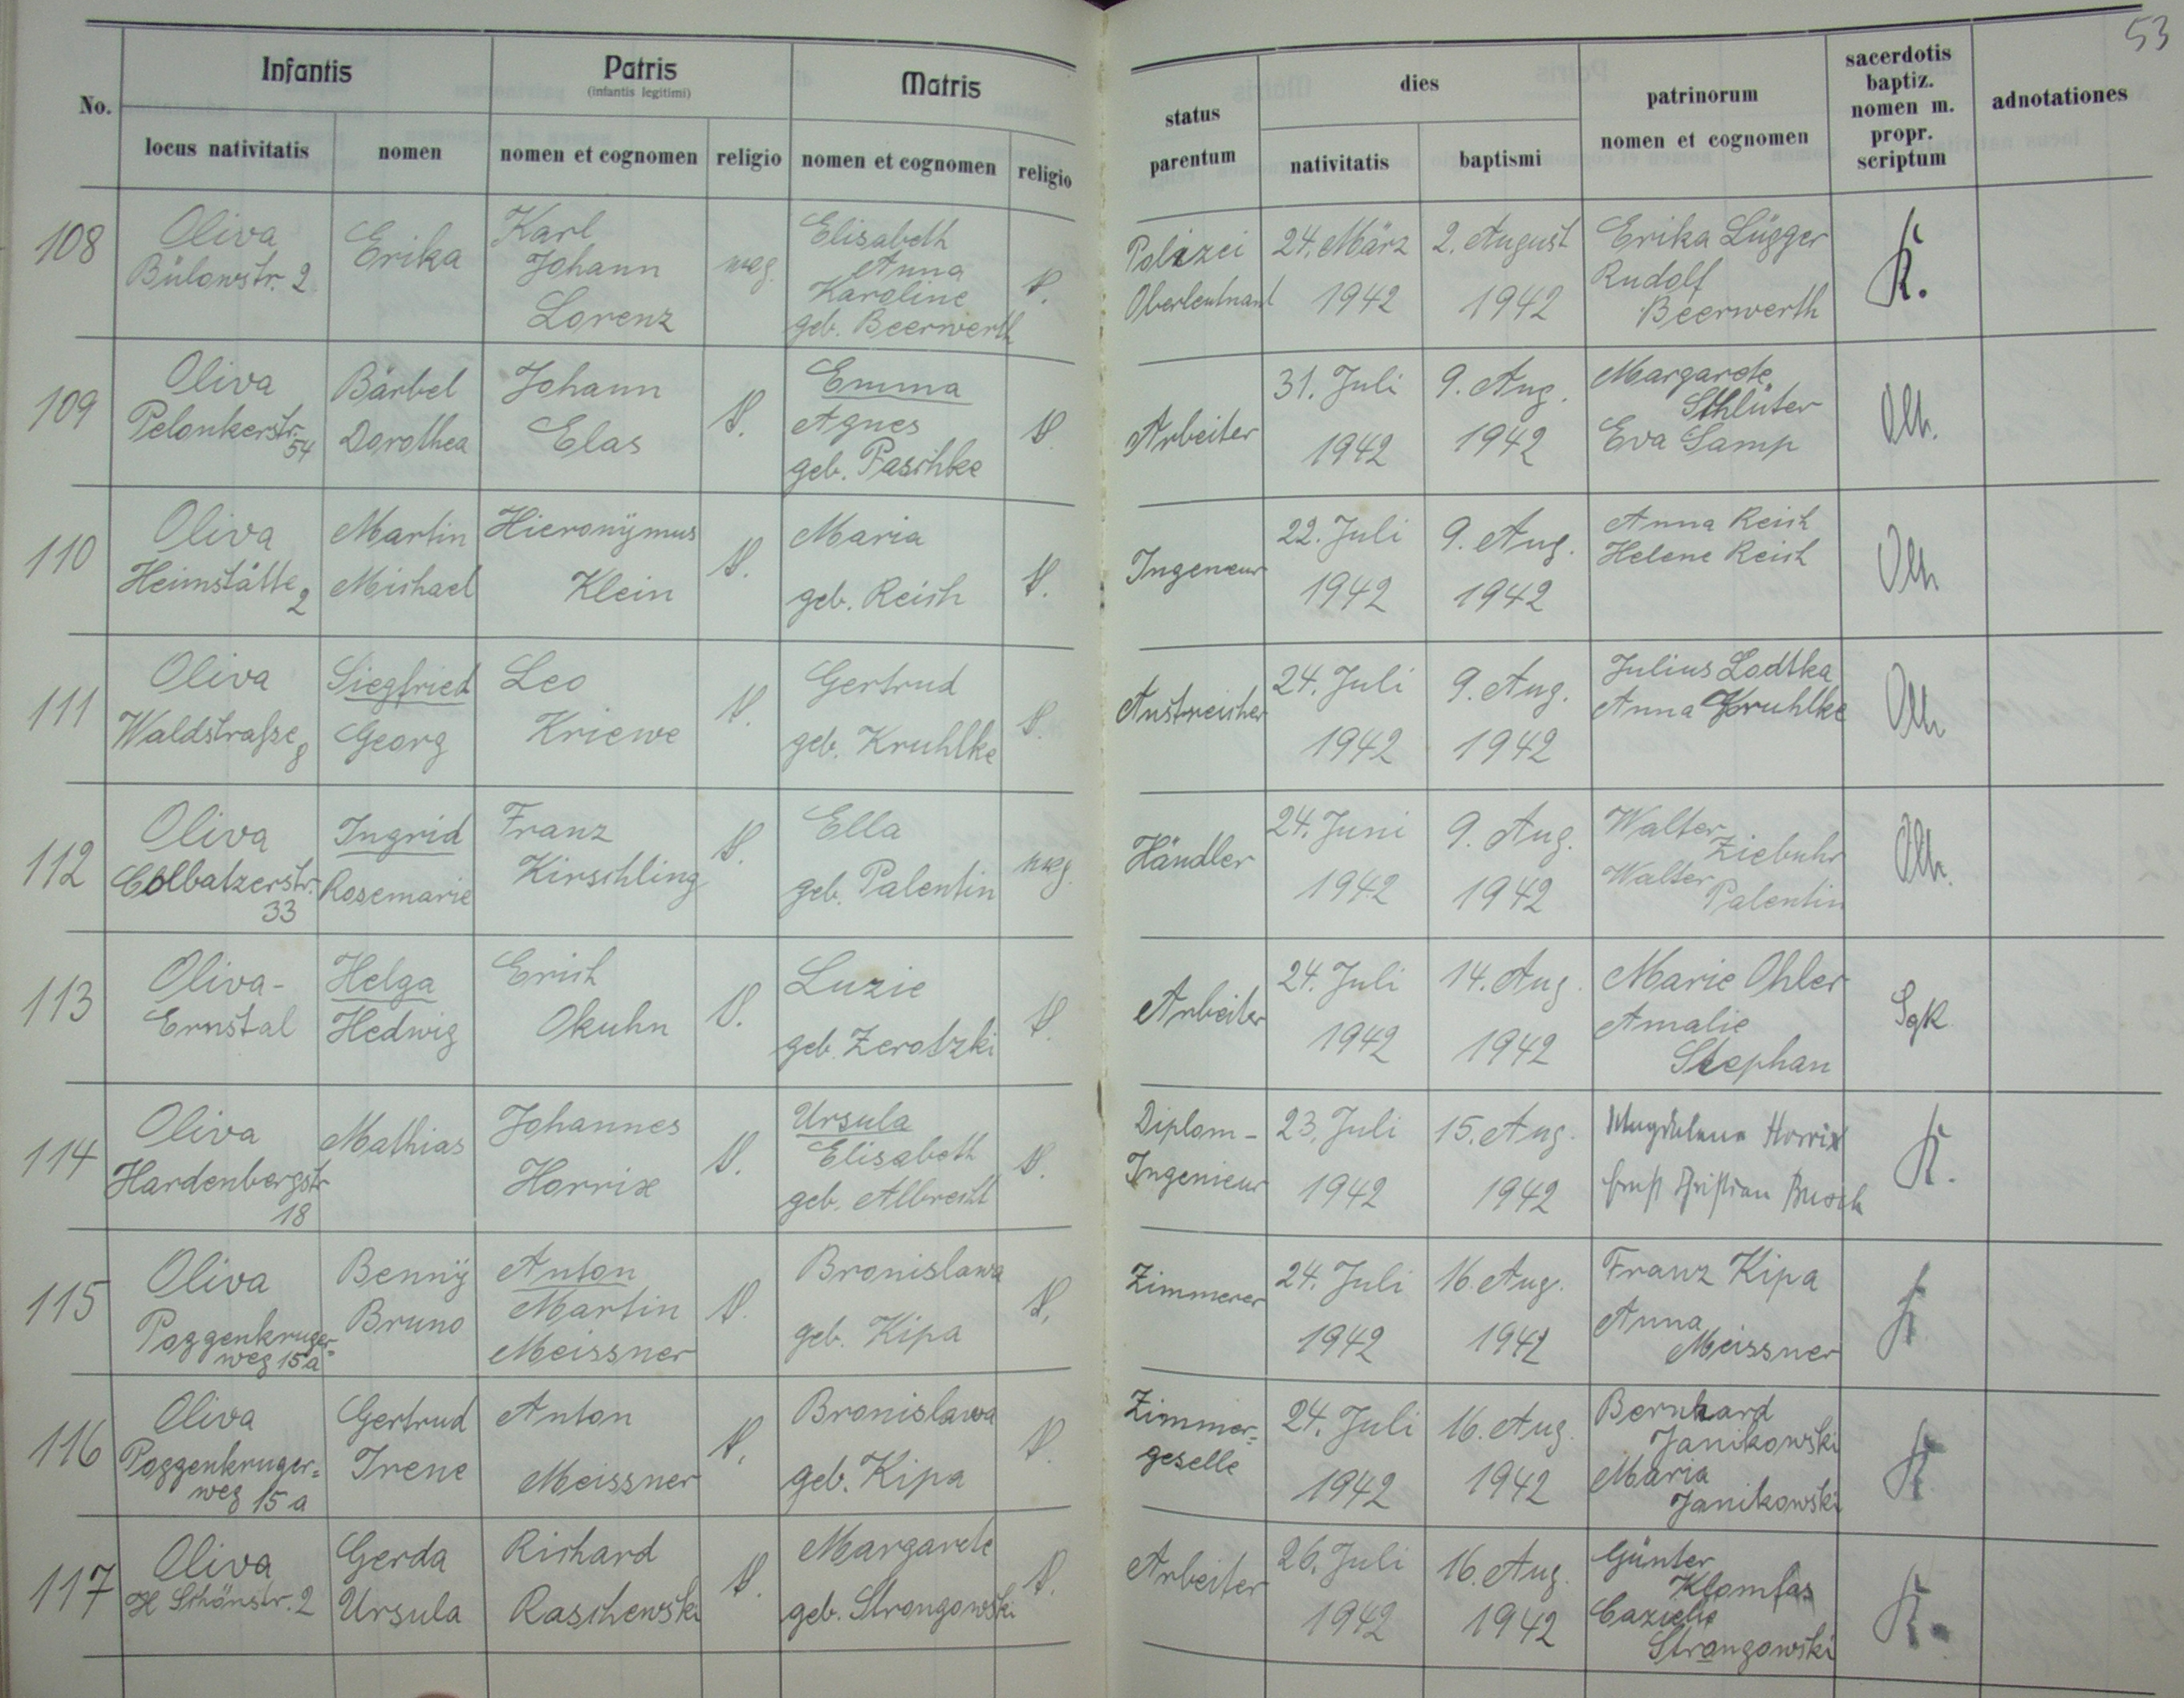 53
Infantis
Patris
(infantis legitimi)
Matris
No.
locus nativitatis
nomen
nomen et cognomen
religio
nomen et cognomen
religio
status
parentum
dies
nativitatis
baptismi
patrinorum
nomen et cognomen
sacerdotis
baptiz.
nomen m.
propr.
scriptum
adnotationes
108
Oliva
Bülowstr. 2
Erika
Karl
Johann
Lorenz
Elisabeth
Anna
Karoline
geb. Beerwerth
Polizei
Oberleutnant
24. März
1942
2. August
1942
Erika Lügger
Rudolf
Beerwerth
K.
109
Oliva
Pelonkerstr.
54
Bärbel
Dorothea
Johann
Elas
Emma
Agnes
geb. Paschke
Arbeiter
31. Juli
1942
9. Aug.
1942
Margarete
Schlüter
Eva Samp
110
Oliva
Heimstätte
2
Martin
Michael
Hieronÿmus
Klein
Maria
geb. Reich
Ingenieur
22. Juli
1942
9. Aug.
1942
Anna Reich
Helene Reich
111
Oliva
Waldstraße
8
Siegfried
Georg
Leo
Kriewe
Gertrud
geb. Kruhlke
Anstreicher
24. Juli
1942
9. Aug.
1942
Julius Lodtka
Anna Kruhlke
112
Oliva
Colbatzerstr.
33
Ingrid
Rosemarie
Franz
Kirschling
Ella
geb. Palentin
Händler
24. Juni
1942
9. Aug.
1942
Walter
Ziebuhr
Walter
Palentin
113
Oliva-
Ernstal
Helga
Hedwig
Erich
Okuhn
Luzie
geb. Zerotzki
Arbeiter
24. Juli
1942
14. Aug.
1942
Marie Ohler
Amalie
Stephan
Sgk
114
Oliva
Hardenbergstr
18
Mathias
Johannes
Horrix
Ursula
Elisabeth
geb. Albrecht
Diplom-
Ingenieur
23. Juli
1942
15. Aug.
1942
Magdalena Horrix
Ernst Christian Busch
K.
115
Oliva
Poggenkruger-
weg 15a
Bennÿ
Bruno
Anton
Martin
Meissner
Bronislawa
geb. Kipa
Zimmerer
24. Juli
1942
16. Aug.
1942
Franz Kipa
Anna
Meissner
K
116
Oliva
Poggenkruger=
weg 15 a
Gertrud
Irene
Anton
Meissner
Bronislawa
geb. Kipa
Zimmer=
geselle
24. Juli
1942
16. Aug.
1942
Bernhard
Janikowski
Maria
Janikowski
K
117
Oliva
H Schönstr. 2
Gerda
Ursula
Richard
Raschewski
Margarete
geb. Strongowski
Arbeiter
26. Juli
1942
16. Aug.
1942
Günter
Klomfas
Strangowski
K.